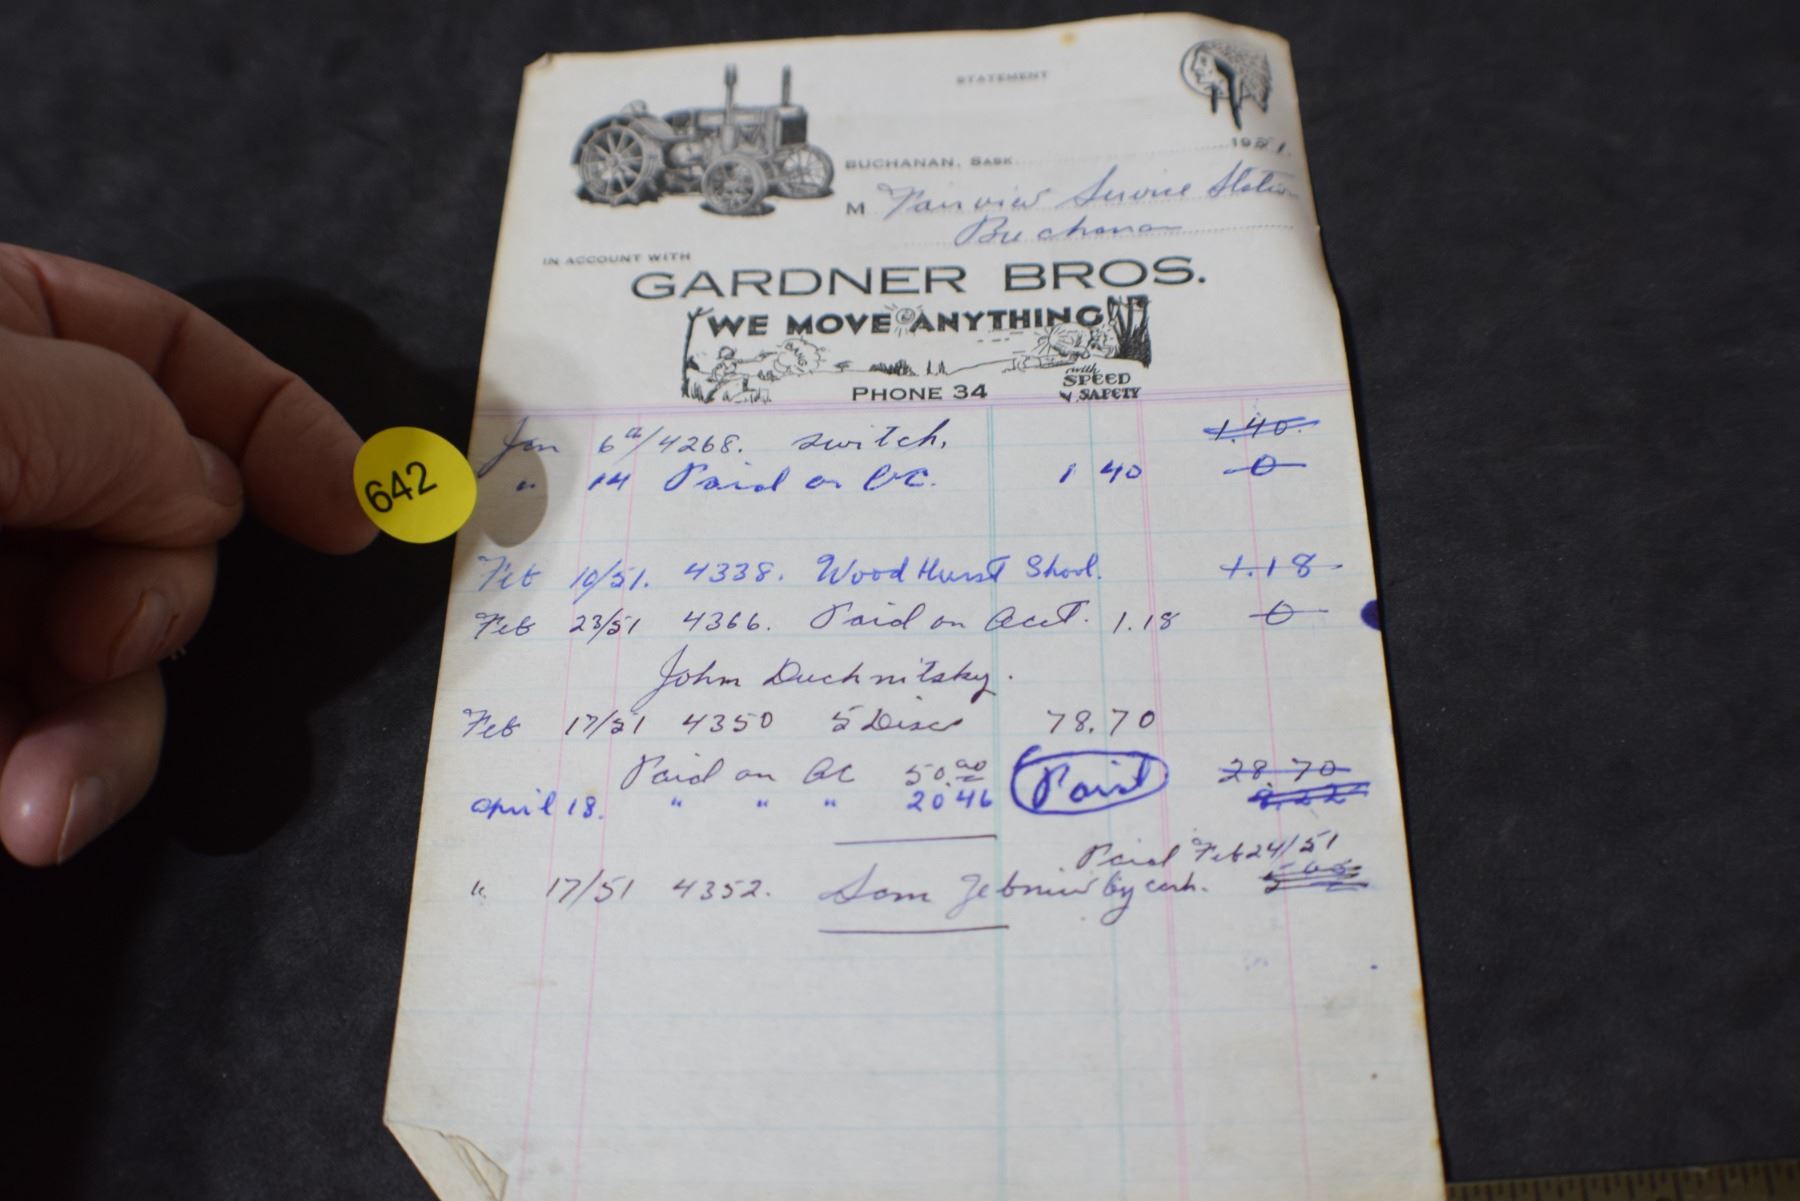 STATEMENT
BUCHANAN, SASK. 1951.
M Fairview Service Station
Buchanan
IN ACCOUNT WITH
GARDNER BROS.
WE MOVE ANYTHING
with
SPEED
& SAFETY
PHONE 34
642
Jan 6th/4268. switch. 1.40.
" 14 Paid on a/c. 1 40 0
Feb 10/51. 4338. Wood Hurst Shool. 1.18
Feb 23/51 4366. Paid on Acct. 1.18 0
John Duchnitsky.
Feb 17/51 4350 5 Discs 78.70
Paid on ac 50.00 Paid 28.70
April 18. " " " 20.46
Paid Feb 24/51
" 17/51 4352. Sam by cash.